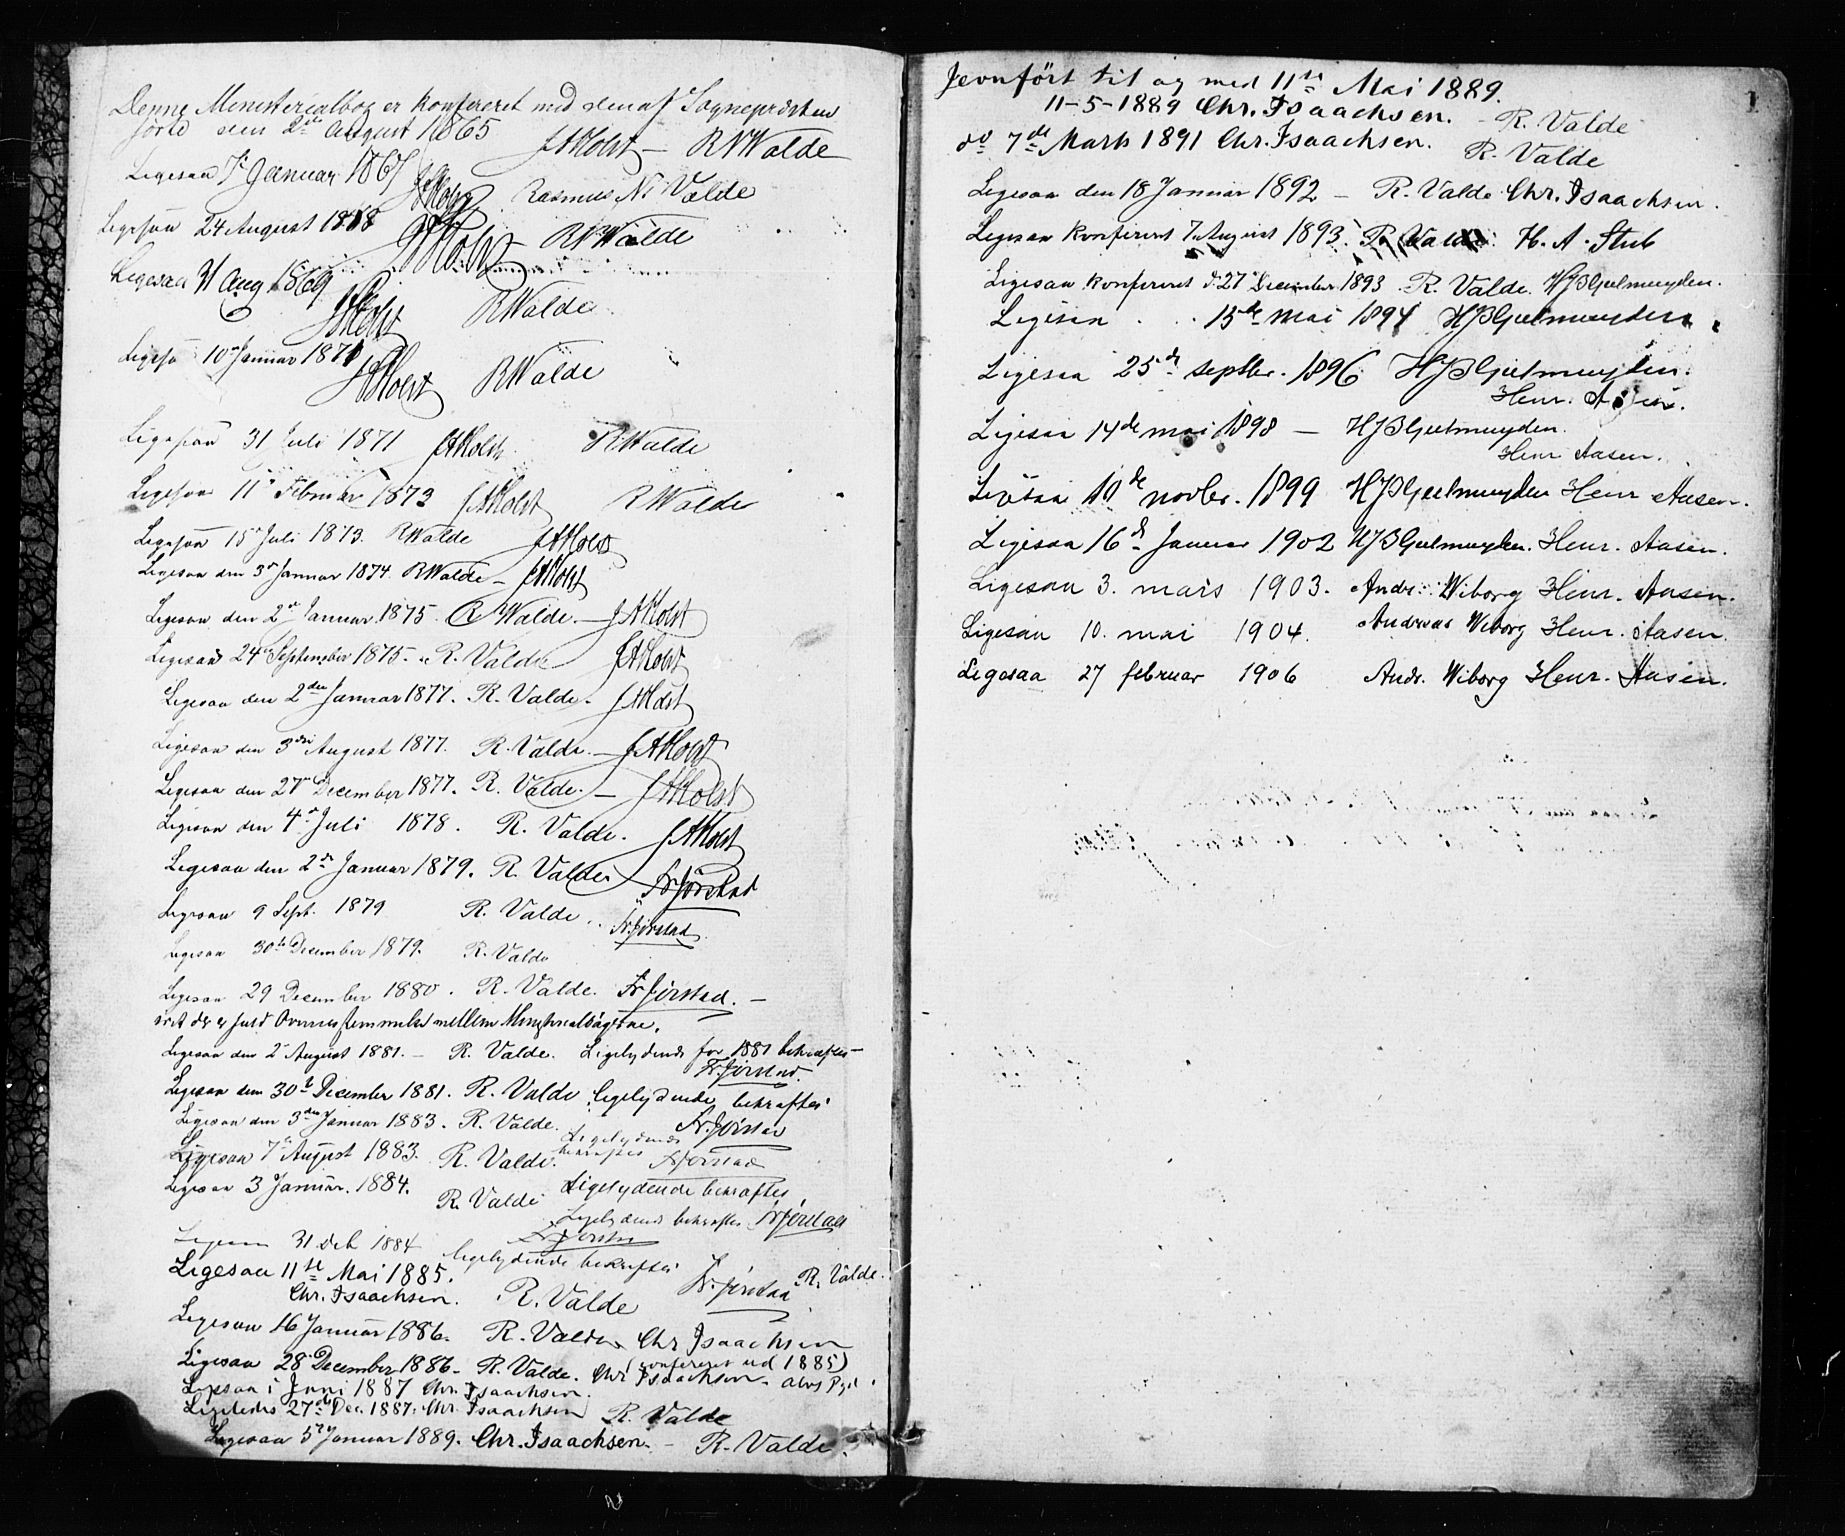 Denne Ministerialbog er konfereret med den af Sognepræsten
førte den 2den August 1865 JAHolst — RNWalde
Ligesaa 7de Januar 1867 JAHolst Rasmus N. Valde
Ligesaa 24 August 1868 JAHolst RNWalde
Ligesaa 31 Aug 1869 JAHolst RWalde
Ligesaa 10 Januar 1871 JAHolst RWalde
Ligesaa 31 Juli 1871 JAHolst RWalde
Ligesaa 11te Februar 1873 JAHolst RWalde
Ligesaa 15de Juli 1873. RWalde JAHolst
Ligesaa den 3de Januar 1874. RWalde — JAHolst
Ligesaa den 2den Januar 1875. R Walde. — JAHolst
Ligesaa 24de September 1875 — R. Valde JAHolst
Ligesaa den 2den Januar 1877. R. Valde. JAHolst
Ligesaa den 3die August 1877. R. Valde. — JAHolst
Ligesaa den 27de December 1877. R. Valde. — JAHolst
Ligesaa den 4de Juli 1878. R. Valde. JAHolst
Ligesaa den 2den Januar 1879. R. Valde. Fr Jørstad
Ligesaa 9 Sept. 1879 R. Valde. Fr. Jørstad
Ligesaa 30te December 1879. R. Valde
Ligesaa 29 December 1880. R. Valde. Fr Jørstad. —
at der er fuld Overensstemmelse mellem Ministerialbøgerne.
Ligesaa den 2 August 1881. — R. Valde. Ligelydende for 1881 bekræftes —
Fr. Jørstad.
Ligesaa den 30te December 1881. R. Valde ligelydende bekræftes
Ligesaa den 3den Januar 1883. R. Valde. Fr. Jørstad
Ligelydende
Ligesaa 7de August 1883. R. Valde. bekræftes Fr Jørstad
Ligesaa 3 Januar. 1884. R. Valde Ligelydende bekræftes
Ligelydende bekræftes Fr Jørstad
Ligesaa 31 Oct 1884 Fr Jørstad
ligelydende bekræftes Fr. Jørstad R. Valde.
Ligesaa 11te Mai 1885.
Chr. Isaachsen. R. Valde
Ligesaa 16 Januar 1886. R. Valde Chr Isaachsen
(confereret ud 1885)
Ligesaa 28 December 1886 — R. Valde. Chr Isaachsen —
Ligesaa i Juni 1887 Chr. Isaachsen.
Ligeledes 27de Dec. 1887. Chr. Isaachsen R. Valde
Ligesaa 5te Januar 1889. Chr. Isaachsen. — R. Valde.
1
Jevnført til og med 11te Mai 1889.
11-5-1889 Chr. Isaachsen. — R. Valde
do 7de Marts 1891 Chr. Isaachsen. R. Valde
Ligesaa den 18 Januar 1892 — R. Valde Chr. Isaachsen.
Ligesaa konfereret 7. August 1893. R. Valde H. A. Stub
Ligesaa konfereret d. 27 December 1893. R. Valde. HJBGeelmuyden.
Ligesaa . . 15de mai 1894 HJBGeelmuyden.
Ligesaa 25de septbr. 1896 HJBGeelmuyden.
Henr. Aasen.
Ligesaa 14de mai 1898 — HJBGeelmuyden.
Henr Aasen.
Ligesaa 10de novbr. 1899 HJBGeelmuyden Henr Aasen.
Ligesaa 16de Januar 1902 HJBGeelmuyden. Henr. Aasen.
Ligesaa 3. mars 1903. Andr. Wiborg Henr. Aasen.
Ligesaa 10. mai 1904. Andreas Wiborg Henr. Aasen.
Ligesaa 27 februar 1906 Andr. Wiborg Henr. Aasen.